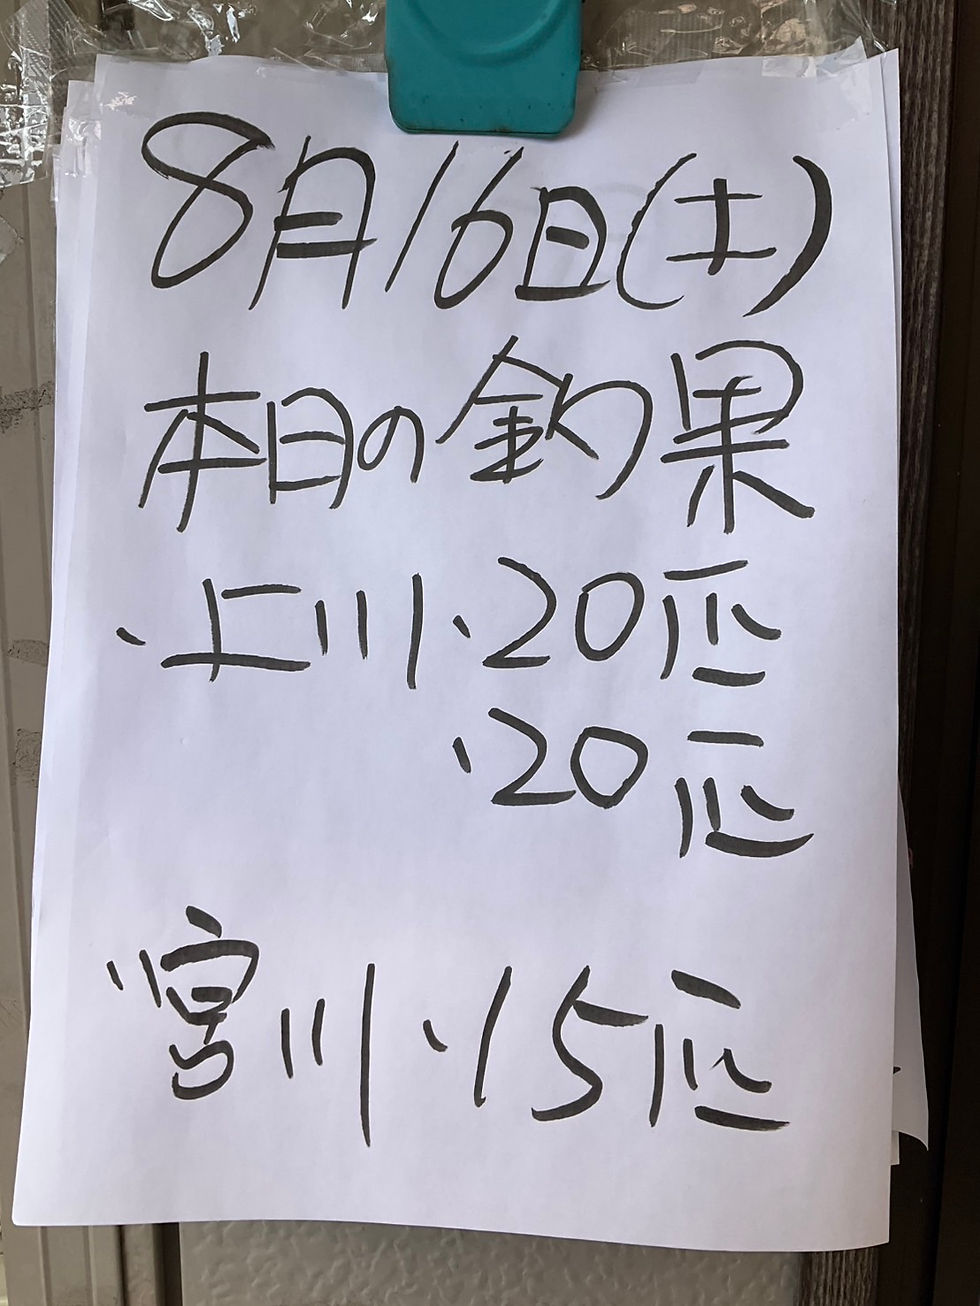 8月16日(土)
本日の釣果
・上川・20匹
・20匹
・宮川・15匹